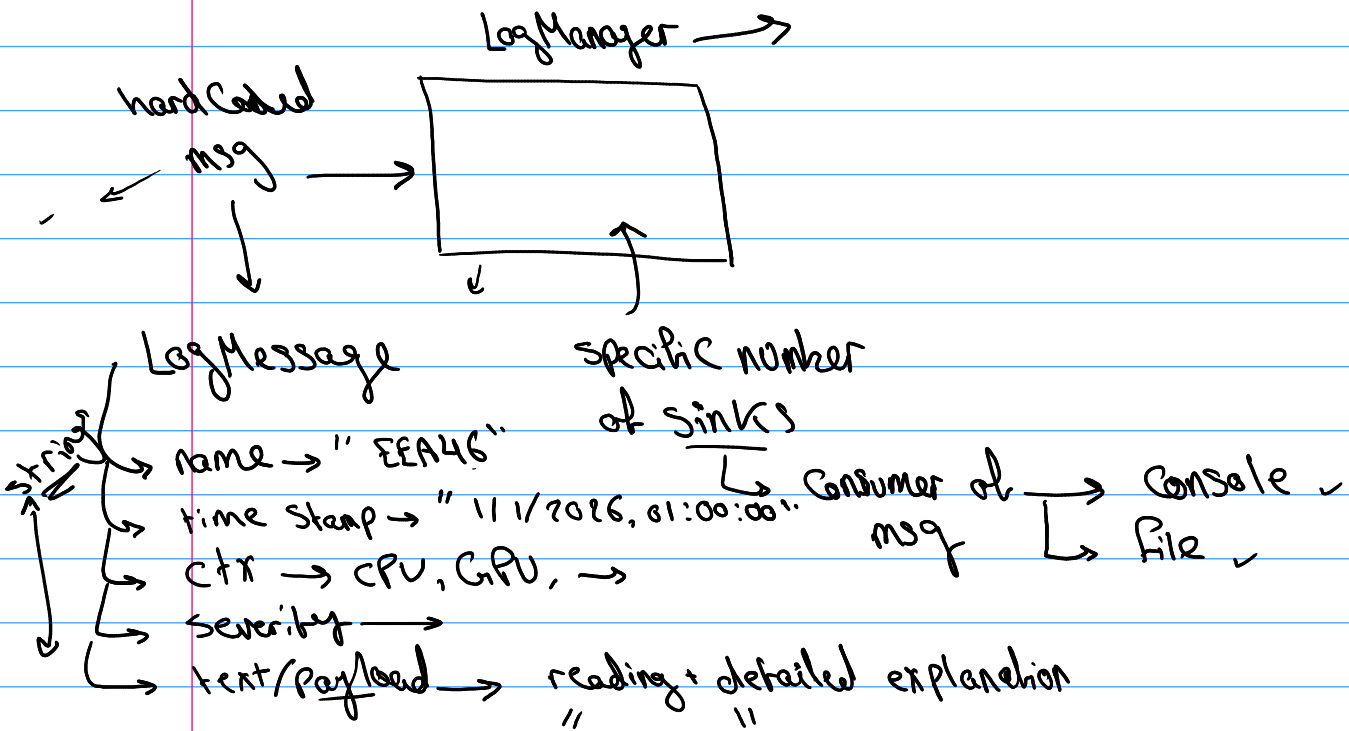 LogManager →
hardCoded
msg →
LogMessage
specific number
of sinks
string
name → " EEA46"
Consumer of → Console ✓
msg
File ✓
time stamp → " 1/1/2026, 01:00:00"
ctx → CPU, GPU, →
severity →
text/payload → reading + detailed explanation
" "